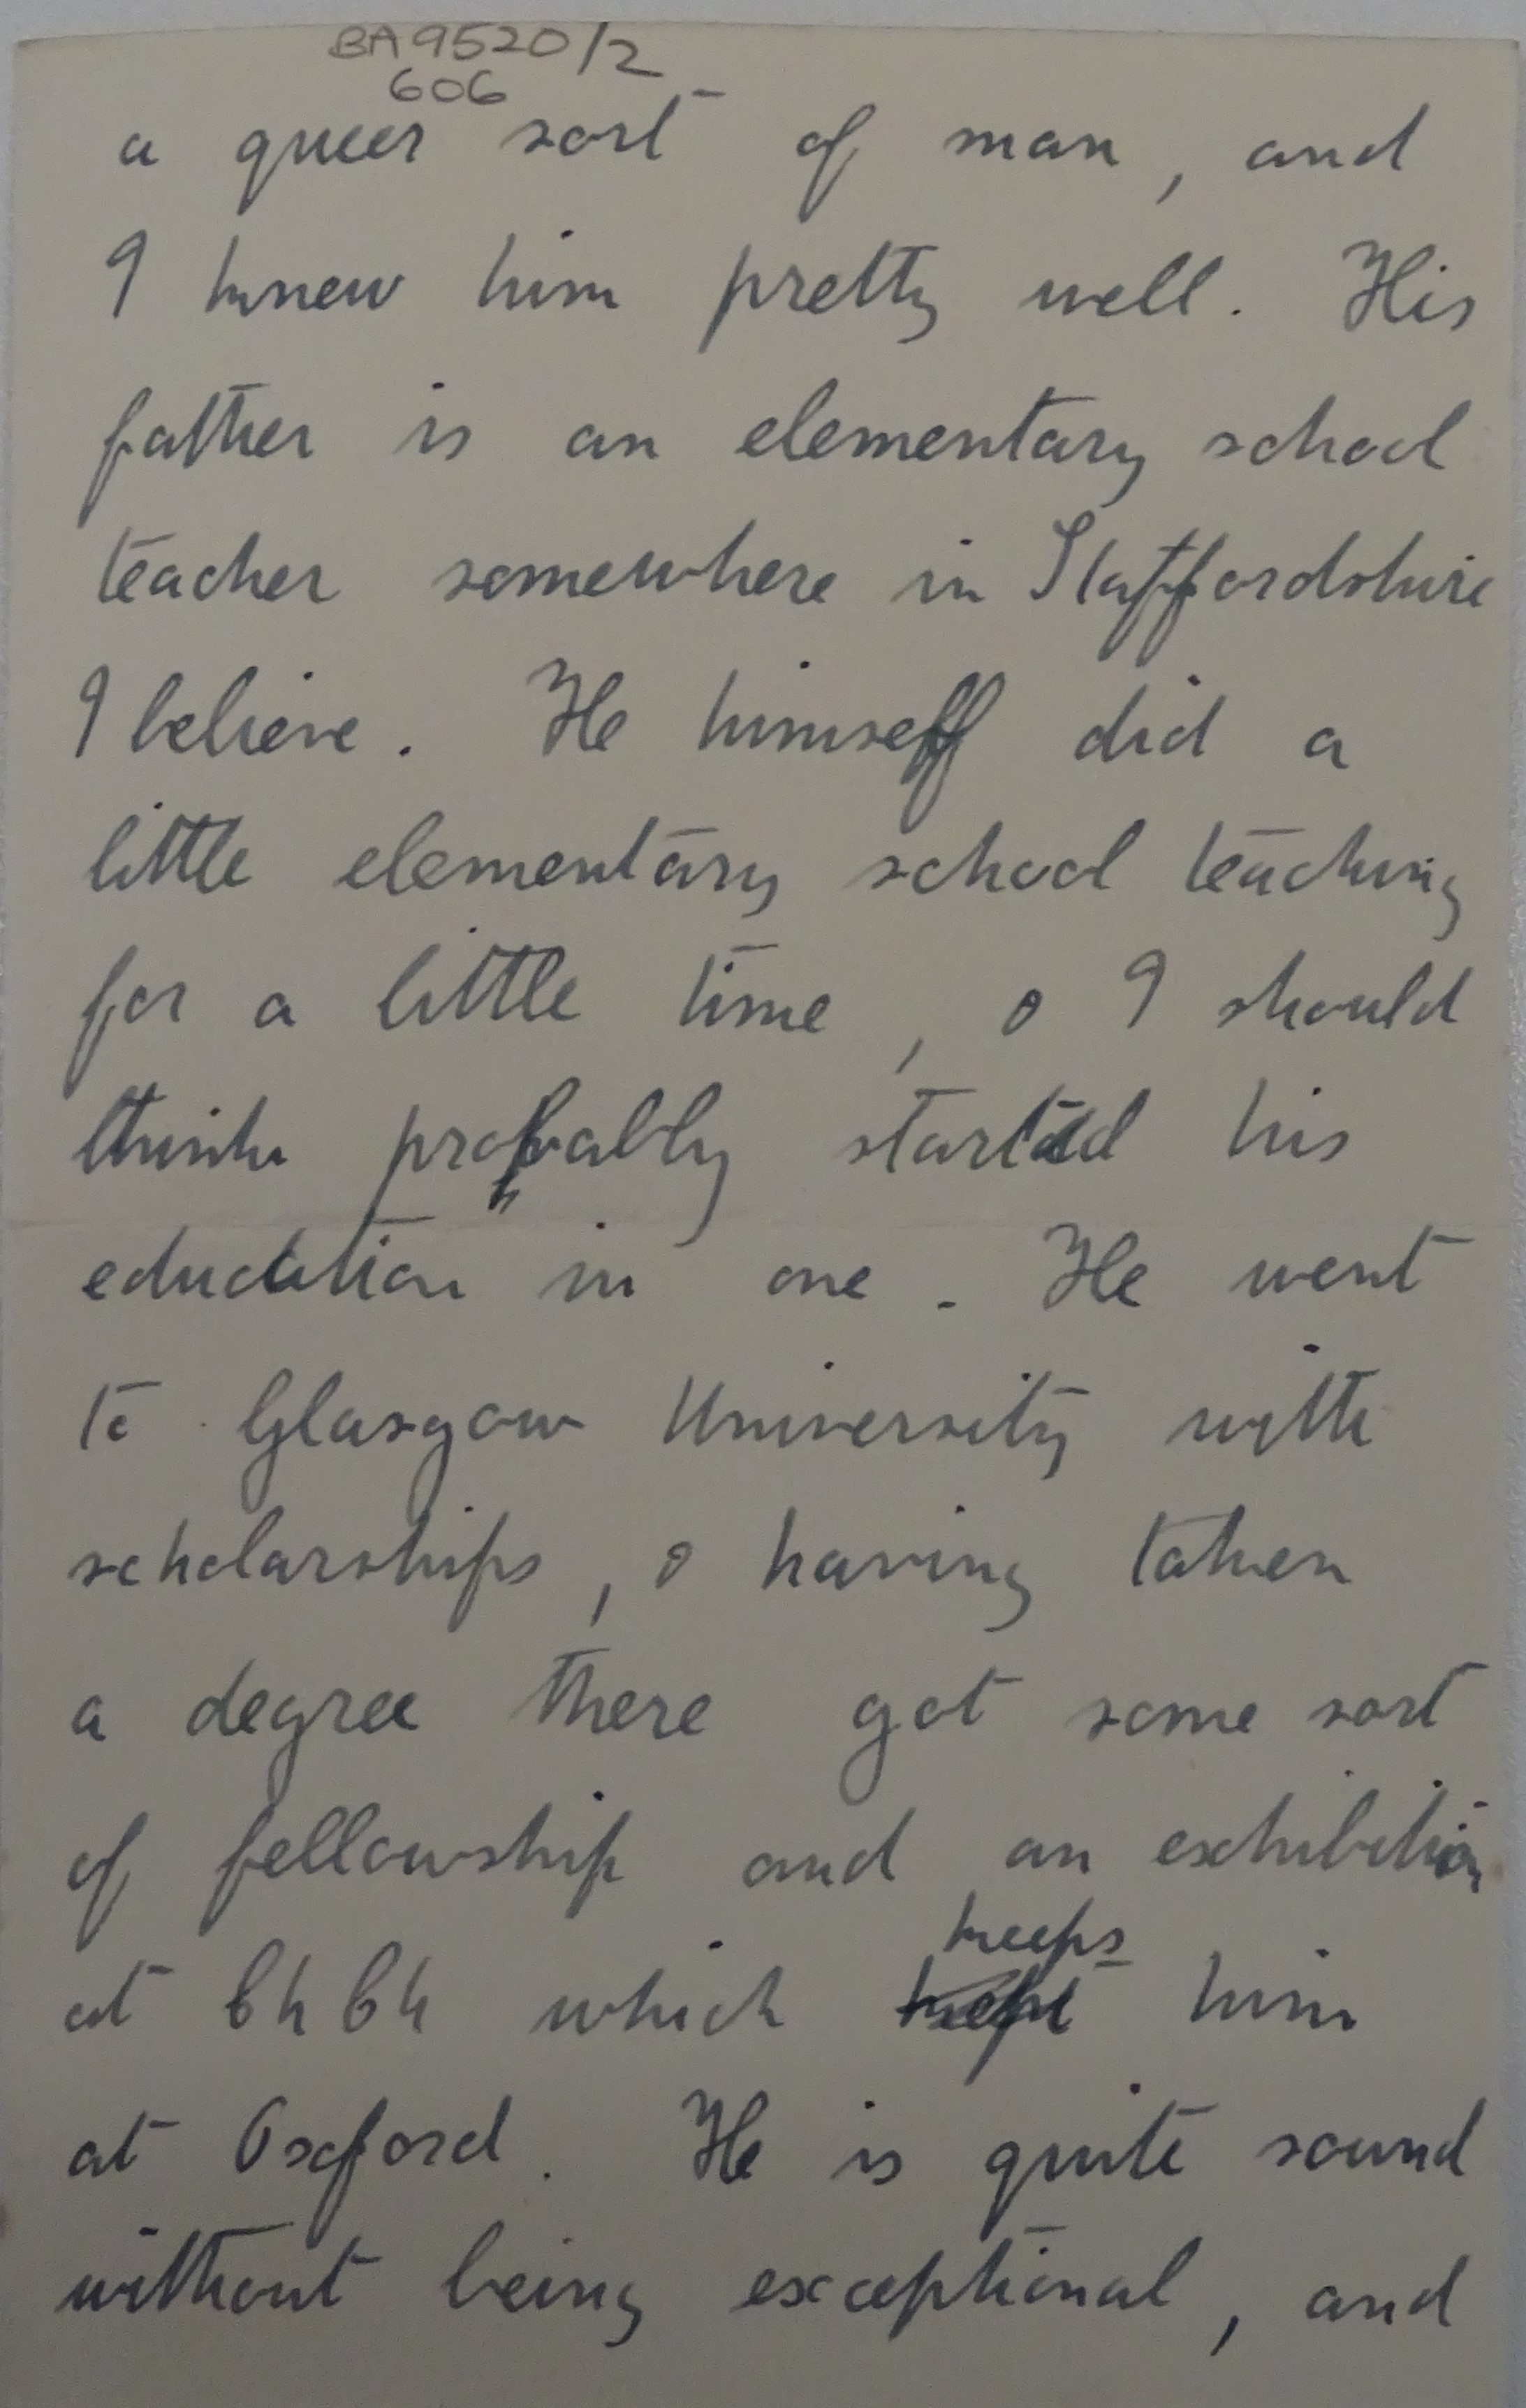 BA9520/2
606
a queer sort of man, and
I knew him pretty well. His
father is an elementary school
teacher somewhere in Staffordshire
I believe. He himself did a
little elementary school teaching
for a little time, & I should
think probably started his
education in one. He went
to Glasgow University with
scholarships, & having taken
a degree there got some sort
of fellowship and an exhibition
keeps
at Ch Ch which kept him
at Oxford. He is quite sound
without being exceptional, and